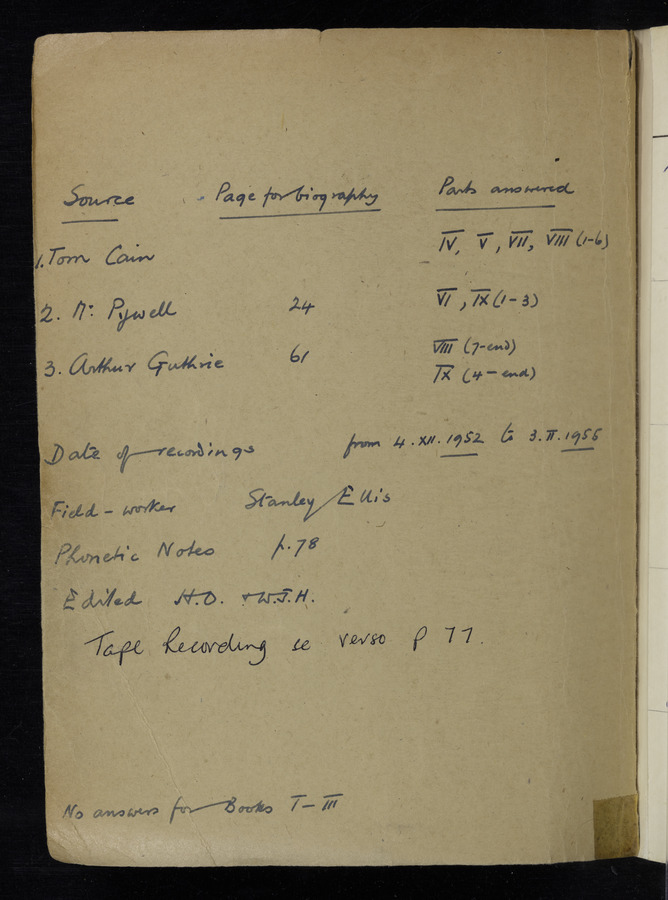 Source Page for biography Parts answered
1. Tom Cain IV, V, VII, VIII (1-6)
2. Mr Pywell 24 VI, IX (1-3)
3. Arthur Guthrie 61 VIII (7-end)
IX (4-end)
Date of recordings from 4.XII.1952 to 3.II.1955
Field-worker Stanley Ellis
Phonetic Notes p.78
Edited H.O. + W.J.H.
Tape Recording se verso p 77.
No answers for Books I-III